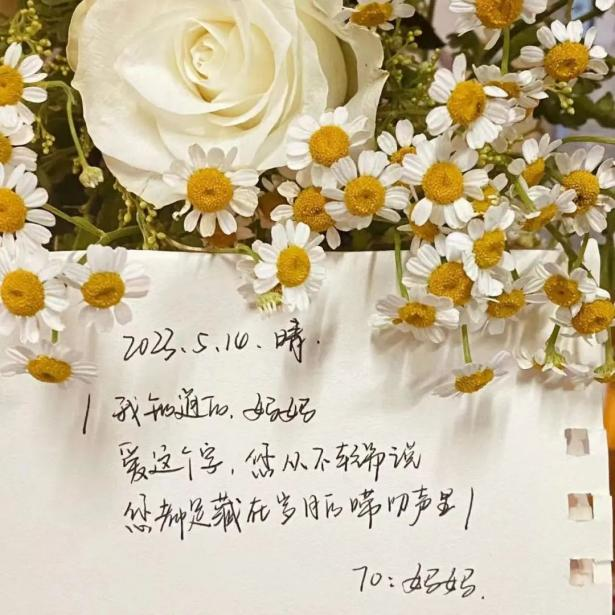 2023.5.14.晴.
| 我知道的，妈妈
爱这个字，您从不轻篇说
您都是藏在岁月的唠叨声里 |
TO：妈妈.